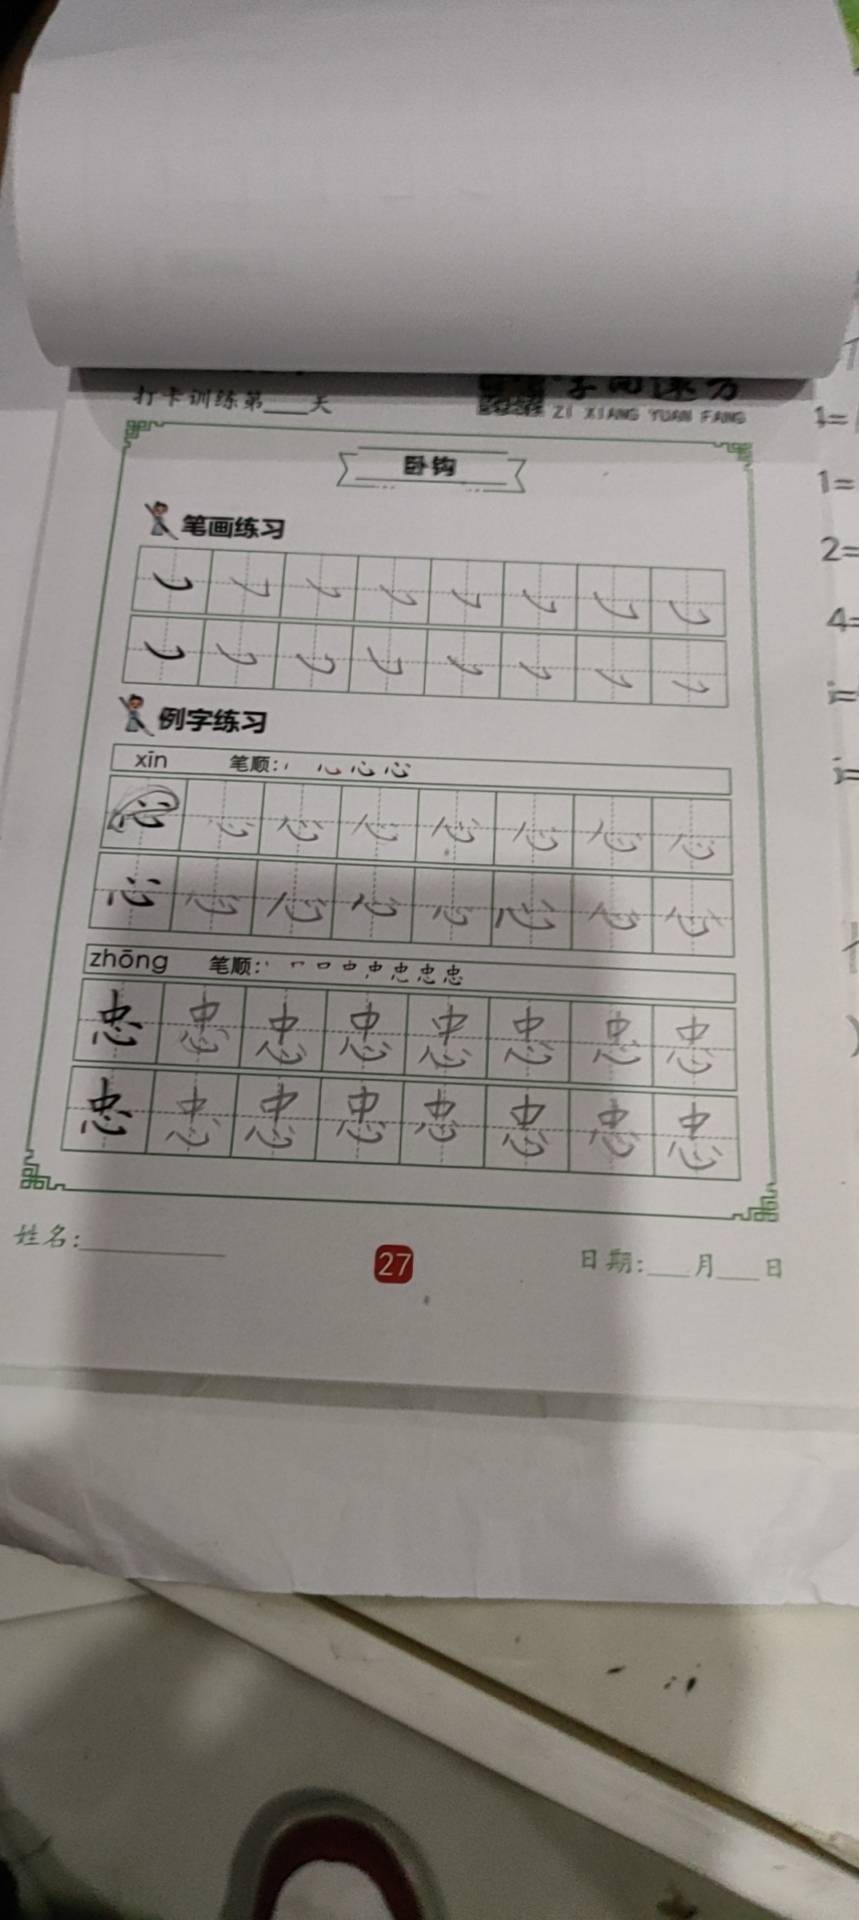 打卡训练第___天
ZI XIANG YUAN FANG
卧钩
笔画练习
例字练习
xīn 笔顺:
心 心 心 心 心 心 心 心
心 心 心 心 心 心 心 心
zhōng 笔顺:
忠 忠 忠 忠 忠 忠 忠 忠
忠 忠 忠 忠 忠 忠 忠 忠
姓名:
27
日期:___月___日
1=
1=
2=
4=